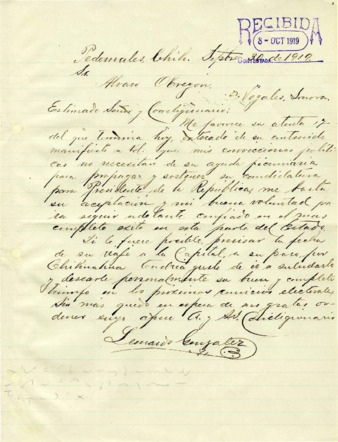 RECIBIDA
8 - OCT 1919
Pedernales, Chih. Septbre 30 de 1919
Sr.
Alvaro Obregon.
Nogales, Sonora.
Estimado Señor y Correligionario:
Me favorece su atenta 17
del que termina hoy, enterado de su contenido
manifiesto a Ud. que mis convicciones politi
cas no necesitan de su ayuda pecuniaria
para propagar y sostener su candidatura
para Presidente de la Republica, me basta
su aceptacion y mi buena voluntad pa
ra seguir adelante confiado en el mas
completo exito en esta parte del Estado.
Si le fuere posible precisar la fecha
de su viaje a la Capital, a su paso por
Chihuahua tendria gusto de ir a saludarle
y desearle personalmente su buen y completo
triunfo en los proximos comicios electorales
Sin más quedo en espera de sus gratas or
denes suyo afmo. A. y SS. Correligionario
Leonardo Gonzalez